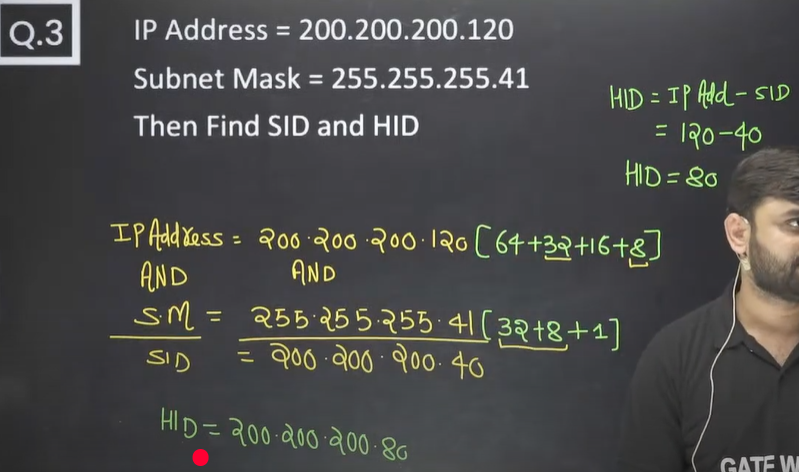 Q.3
IP Address = 200.200.200.120
Subnet Mask = 255.255.255.41
Then Find SID and HID
HID = IP Add - SID
= 120-40
HID = 80
IP Address = 200.200.200.120 [64+32+16+8]
AND AND
S.M = 255.255.255.41 [32+8+1]
SID = 200.200.200.40
HID = 200.200.200.80
GATE W